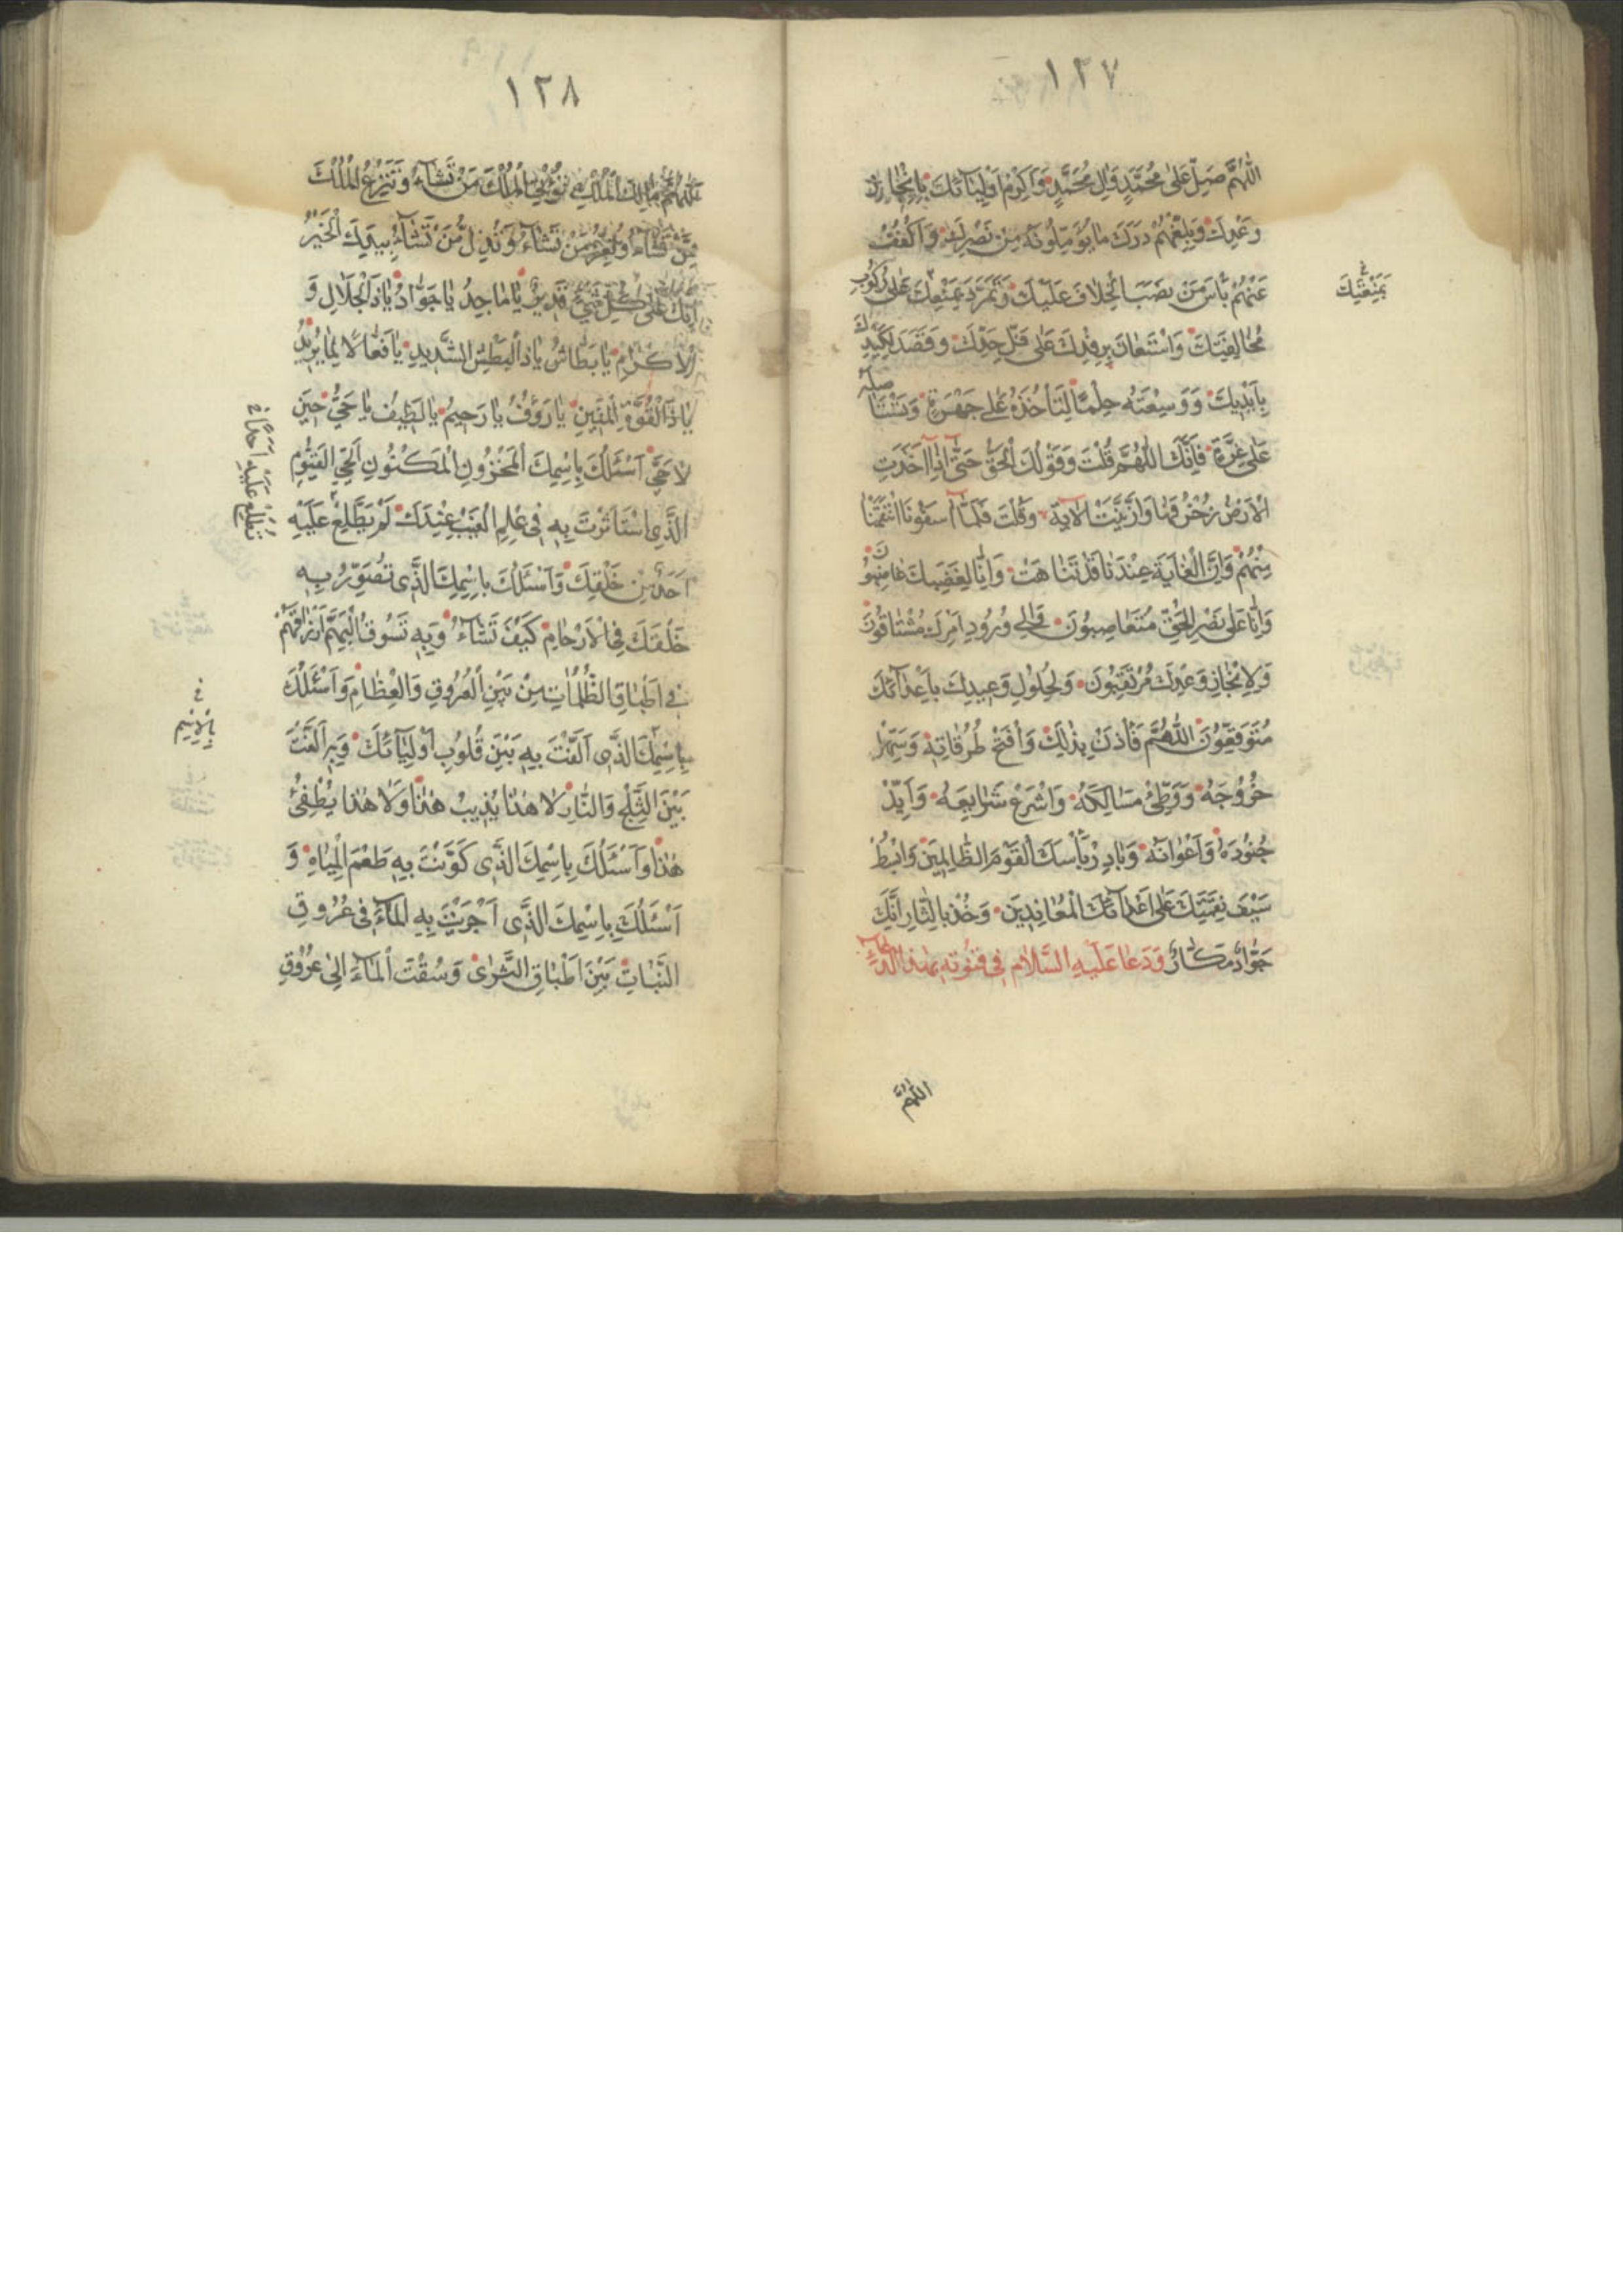 ١٢٧
اَللّٰهُمَّ صَلِّ عَلٰى مُحَمَّدٍ وَاٰلِ مُحَمَّدٍ وَاَكْرِمْ اَوْلِيٰآئَكَ بِاِنْجٰازِ
وَعْدِكَ وَبَلِّغْهُمْ دَرَكَ مٰا يُؤَمِّلُونَهُ مِنْ نَصْرِكَ وَاكْفُفْ
عَنْهُمْ بَأْسَ مَنْ نَصَبَ الْخِلٰافَ عَلَيْكَ وَتَمَرَّدَ بِمَنْعِكَ عَلٰى رُكُوبِ
مُخٰالَفَتِكَ وَاسْتَعٰانَ بِرِفْدِكَ عَلٰى فَلِّ حَدِّكَ وَقَصَدَ لِكَيْدِكَ
بِاَيْدِكَ وَوَسِعْتَهُ حِلْماً لِتَأْخُذَهُ عَلٰى جَهْرَةٍ وَتَسْتَأْصِلَهُ
عَلٰى غِرَّةٍ فَاِنَّكَ اللّٰهُمَّ قُلْتَ وَقَوْلُكَ الْحَقُّ حَتّٰى اِذٰا اَخَذَتِ
الْاَرْضُ زُخْرُفَهٰا وَازَّيَّنَتْ الآية وَقُلْتَ فَلَمّٰا اٰسَفُونَا انْتَقَمْنٰا
مِنْهُمْ وَاِنَّ الْغٰايَةَ عِنْدَنٰا قَدْ تَنٰاهَتْ وَاِنّٰا لِغَضَبِكَ غٰاضِبُونَ
وَاِنّٰا عَلٰى نَصْرِ الْحَقِّ مُتَعٰاصِبُونَ وَاِلٰى وُرُودِ اَمْرِكَ مُشْتٰاقُونَ
وَلِاِنْجٰازِ وَعْدِكَ مُرْتَقِبُونَ وَلِحُلُولِ وَعِيدِكَ بِاَعْدٰآئِكَ
مُتَوَقِّعُونَ اَللّٰهُمَّ فَأْذَنْ بِذٰلِكَ وَافْتَحْ طُرُقٰاتِهِ وَسَهِّلْ
خُرُوجَهُ وَوَطِّئْ مَسٰالِكَهُ وَاشْرَعْ شَرٰايِعَهُ وَاَيِّدْ
جُنُودَهُ وَاَعْوٰانَهُ وَبٰادِرْ بَأْسَكَ الْقَوْمَ الظّٰالِمِينَ وَابْسُطْ
سَيْفَ نِقْمَتِكَ عَلٰى اَعْدٰآئِكَ الْمُعٰانِدِينَ وَخُذْ بِالثّٰارِ اِنَّكَ
جَوٰادٌ مَكّٰارٌ وَدَعٰا عَلَيْهِ السَّلٰام فِي قُنُوتِهِ بِهٰذَا الدُّعٰاءِ
بِمَنْعَتِكَ
اللّٰهُمَّ
١٢٨
اَللّٰهُمَّ مٰالِكَ الْمُلْكِ تُؤْتِي الْمُلْكَ مَنْ تَشٰآءُ وَتَنْزِعُ الْمُلْكَ
مِمَّنْ تَشٰآءُ وَتُعِزُّ مَنْ تَشٰآءُ وَتُذِلُّ مَنْ تَشٰآءُ بِيَدِكَ الْخَيْرُ
اِنَّكَ عَلٰى كُلِّ شَيْءٍ قَدِيرٌ يٰا مٰاجِدُ يٰا جَوٰادُ يٰا ذَا الْجَلٰالِ وَ
الْاِكْرٰامِ يٰا بَطّٰاشُ يٰا ذَا الْبَطْشِ الشَّدِيدِ يٰا فَعّٰالًا لِمٰا يُرِيدُ
يٰا ذَا الْقُوَّةِ الْمَتِينِ يٰا رَؤُفُ يٰا رَحِيمُ يٰا لَطِيفُ يٰا حَيُّ حِينَ
لٰا حَيَّ اَسْئَلُكَ بِاسْمِكَ الْمَخْزُونِ الْمَكْنُونِ الْحَيِّ الْقَيُّومِ
الَّذِي اسْتَأْثَرْتَ بِهِ فِي عِلْمِ الْغَيْبِ عِنْدَكَ لَمْ يَطَّلِعْ عَلَيْهِ
اَحَدٌ مِنْ خَلْقِكَ وَاَسْئَلُكَ بِاسْمِكَ الَّذِي تُصَوِّرُ بِهِ
خَلْقَكَ فِي الْاَرْحٰامِ كَيْفَ تَشٰآءُ وَبِهِ تَسُوقُ اِلَيْهِمْ اَرْزٰاقَهُمْ
فِي اَطْبٰاقِ الظُّلُمٰاتِ مِنْ بَيْنِ الْعُرُوقِ وَالْعِظٰامِ وَاَسْئَلُكَ
بِاسْمِكَ الَّذِي اَلَّفْتَ بِهِ بَيْنَ قُلُوبِ اَوْلِيٰآئِكَ وَبِهِ اَلَّفْتَ
بَيْنَ الثَّلْجِ وَالنّٰارِ لٰا هٰذٰا يُذِيبُ هٰذٰا وَلٰا هٰذٰا يُطْفِئُ
هٰذٰا وَاَسْئَلُكَ بِاسْمِكَ الَّذِي كَوَّنْتَ بِهِ طَعْمَ الْمِيٰاهِ وَ
اَسْئَلُكَ بِاسْمِكَ الَّذِي اَجْرَيْتَ بِهِ الْمٰآءَ فِي عُرُوقِ
النَّبٰاتِ بَيْنَ اَطْبٰاقِ الثَّرٰى وَسُقْتَ الْمٰآءَ اِلٰى عُرُوقِ
عَلَيْهِ اَحَداً